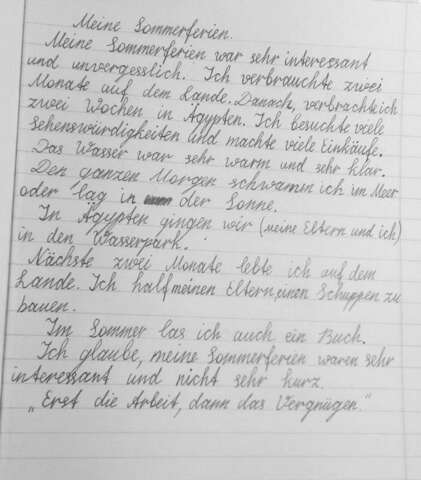 Meine Sommerferien.
Meine Sommerferien war sehr interessant
und unvergesslich. Ich verbrauchte zwei
Monate auf dem Lande. Danach, verbrachte ich
zwei Wochen in Ägypten. Ich besuchte viele
Sehenswürdigkeiten und machte viele Einkäufe.
Das Wasser war sehr warm und sehr klar.
Den ganzen Morgen schwamm ich im Meer
oder lag in der Sonne.
In Ägypten gingen wir (meine Eltern und ich)
in den Wasserpark.
Nächste zwei Monate lebte ich auf dem
Lande. Ich half meinen Eltern, einen Schuppen zu
bauen.
Im Sommer las ich auch ein Buch.
Ich glaube, meine Sommerferien waren sehr
interessant und nicht sehr kurz.
„Erst die Arbeit, dann das Vergnügen."